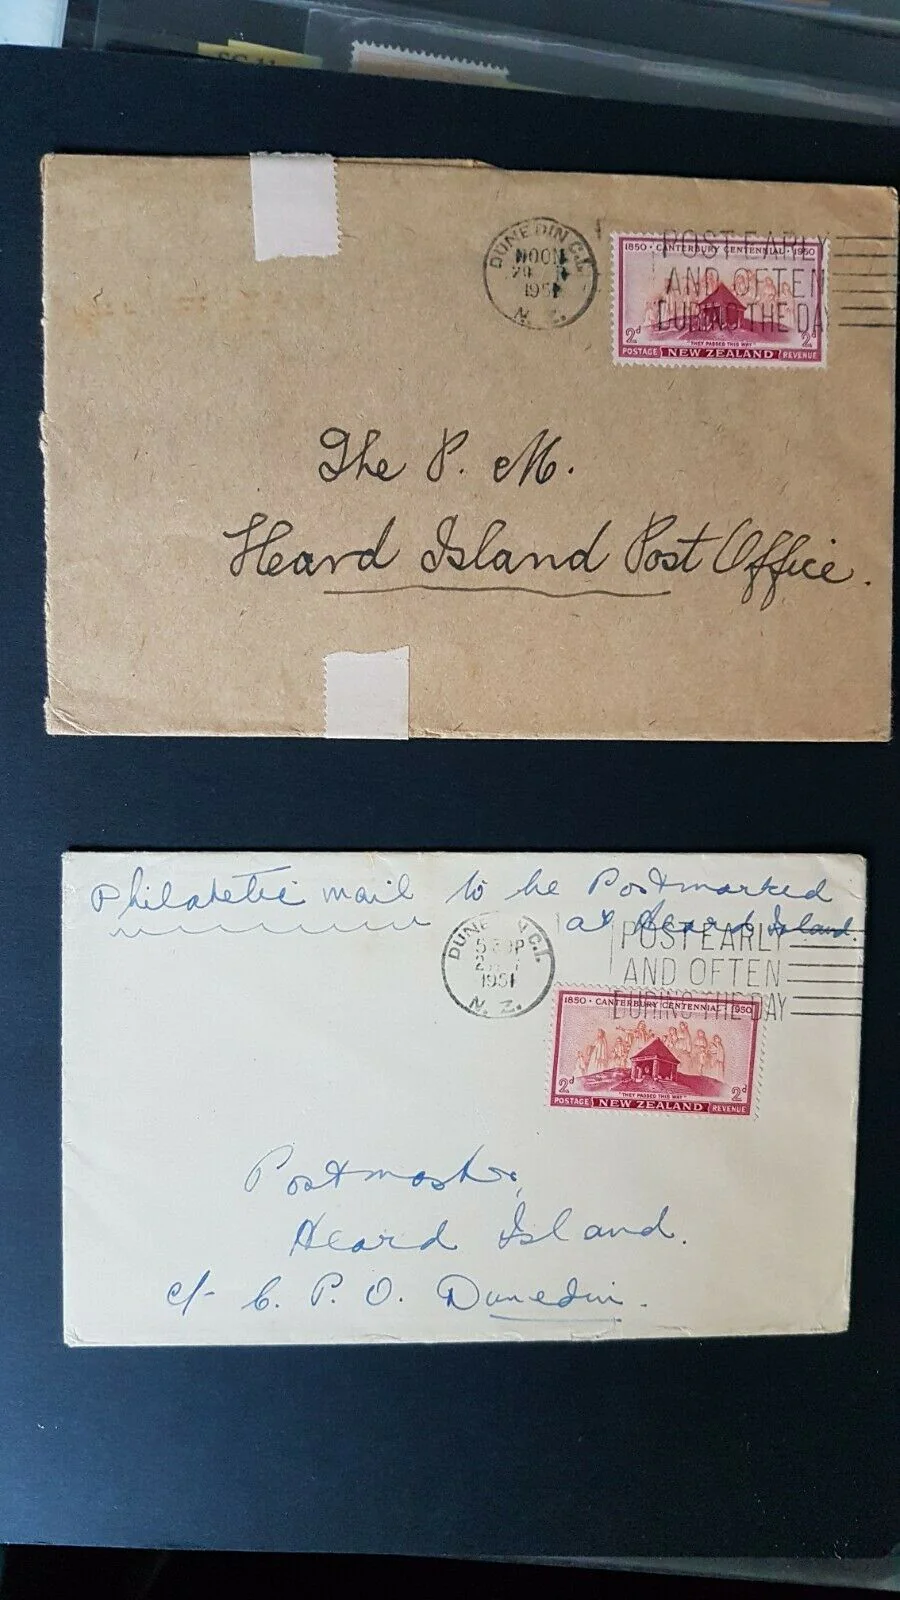 DUNEDIN C.1.
NOON
1951
N. Z.
POST EARLY
AND OFTEN
DURING THE DAY
1850 · CANTERBURY CENTENNIAL · 1950
2d 2d
"THEY PASSED THIS WAY"
POSTAGE NEW ZEALAND REVENUE
The P. M.
Heard Island Post Office.
Philatelic mail to be Postmarked
at Heard Island.
1951
N. Z.
POST EARLY
AND OFTEN
DURING THE DAY
1850 · CANTERBURY CENTENNIAL · 1950
2d 2d
"THEY PASSED THIS WAY"
POSTAGE NEW ZEALAND REVENUE
Postmaster,
Heard Island.
c/- C. P. O. Dunedin.